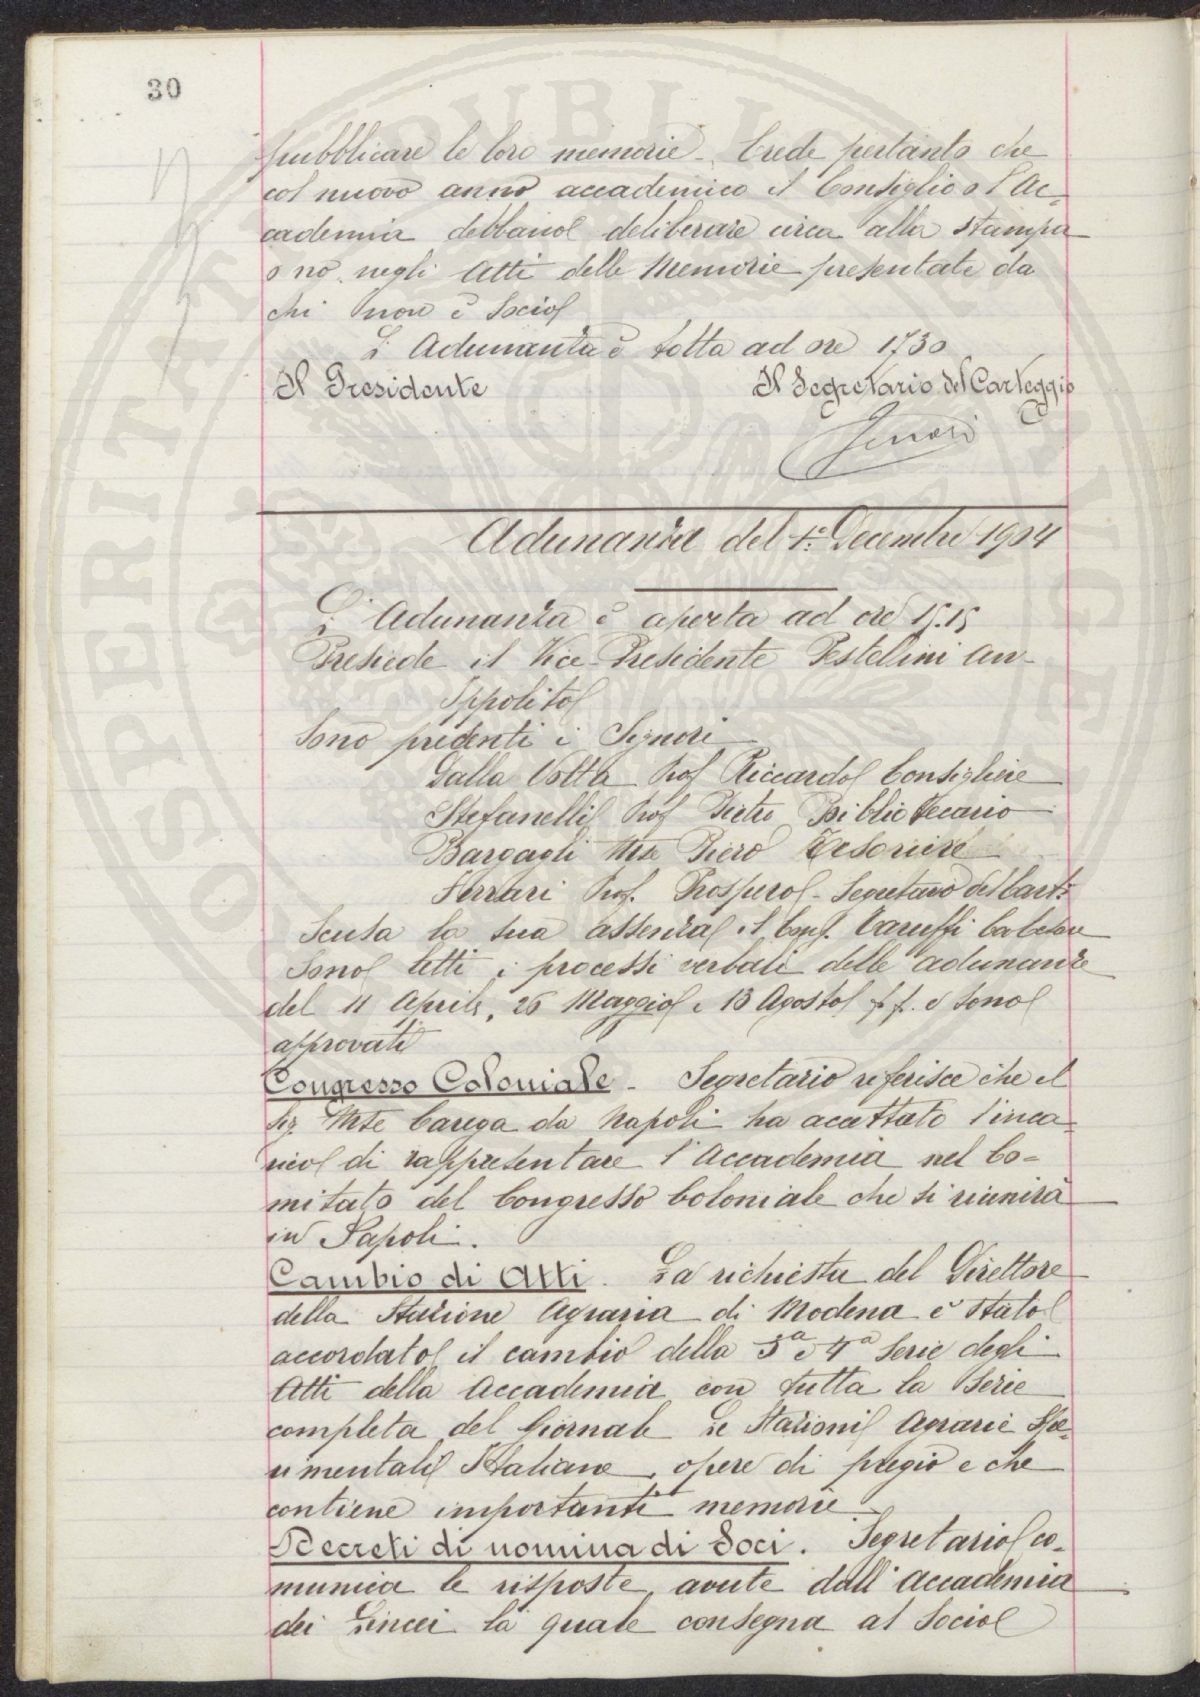 30
pubblicare le loro memorie. Crede pertanto che
col nuovo anno accademico il Consiglio o l'Ac-
cademia debbano deliberare circa alla stampa
o nò negli Atti delle Memorie presentate da
chi non è Socio
L'Adunanza è tolta ad ore 17.30
Il Presidente Il Segretario del Carteggio
Adunanza del 1° Decembre 1904
L'Adunanza è aperta ad ore 15.15
Presiede il Vice-Presidente Pestelini
Ippolito
Sono presenti i Signori
Dalla Volta Prof Riccardo Consigliere
Stefanelli Prof Pietro Bibliotecario
Bargagli Mse Piero Tesoriere
Ferrari Prof. Prospero - Segretario del Cart:
Scusa la sua assenza il Cons.
Sono letti i processi verbali delle adunanze
del 11 Aprile, 26 Maggio e 13 Agosto p.p. e sono
approvati
Congresso Coloniale - Segretario referisce che il
Sig. Mse Carega da Napoli ha accettato l'inca-
rico di rappresentare l'Accademia nel Co-
mitato del Congresso Coloniale che si riunirà
in Napoli.
Cambio di Atti. La richiesta del Direttore
della Stazione Agraria di Modena è stato
accordato il cambio della 3a e 4a Serie degli
Atti della Accademia con tutta la Serie
completa del Giornale Le Stazioni Agrarie Spe-
rimentali Italiane, opere di pregio e che
contiene importanti memorie.
Decreti di nomina di Soci. Segretario co-
munica le risposte avute dall'Accademia
dei Lincei la quale consegna al Socio